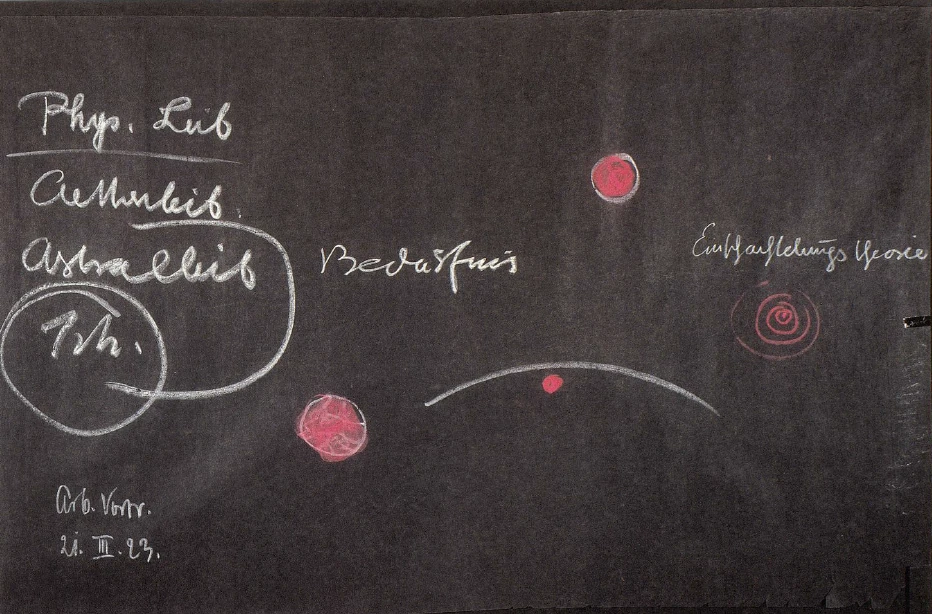 Phys. Leib
Aetherleib.
Astralleib
Ich.
Bedürfnis
Einschachtelungstheorie
Arb. Vortr.
21. III. 23.